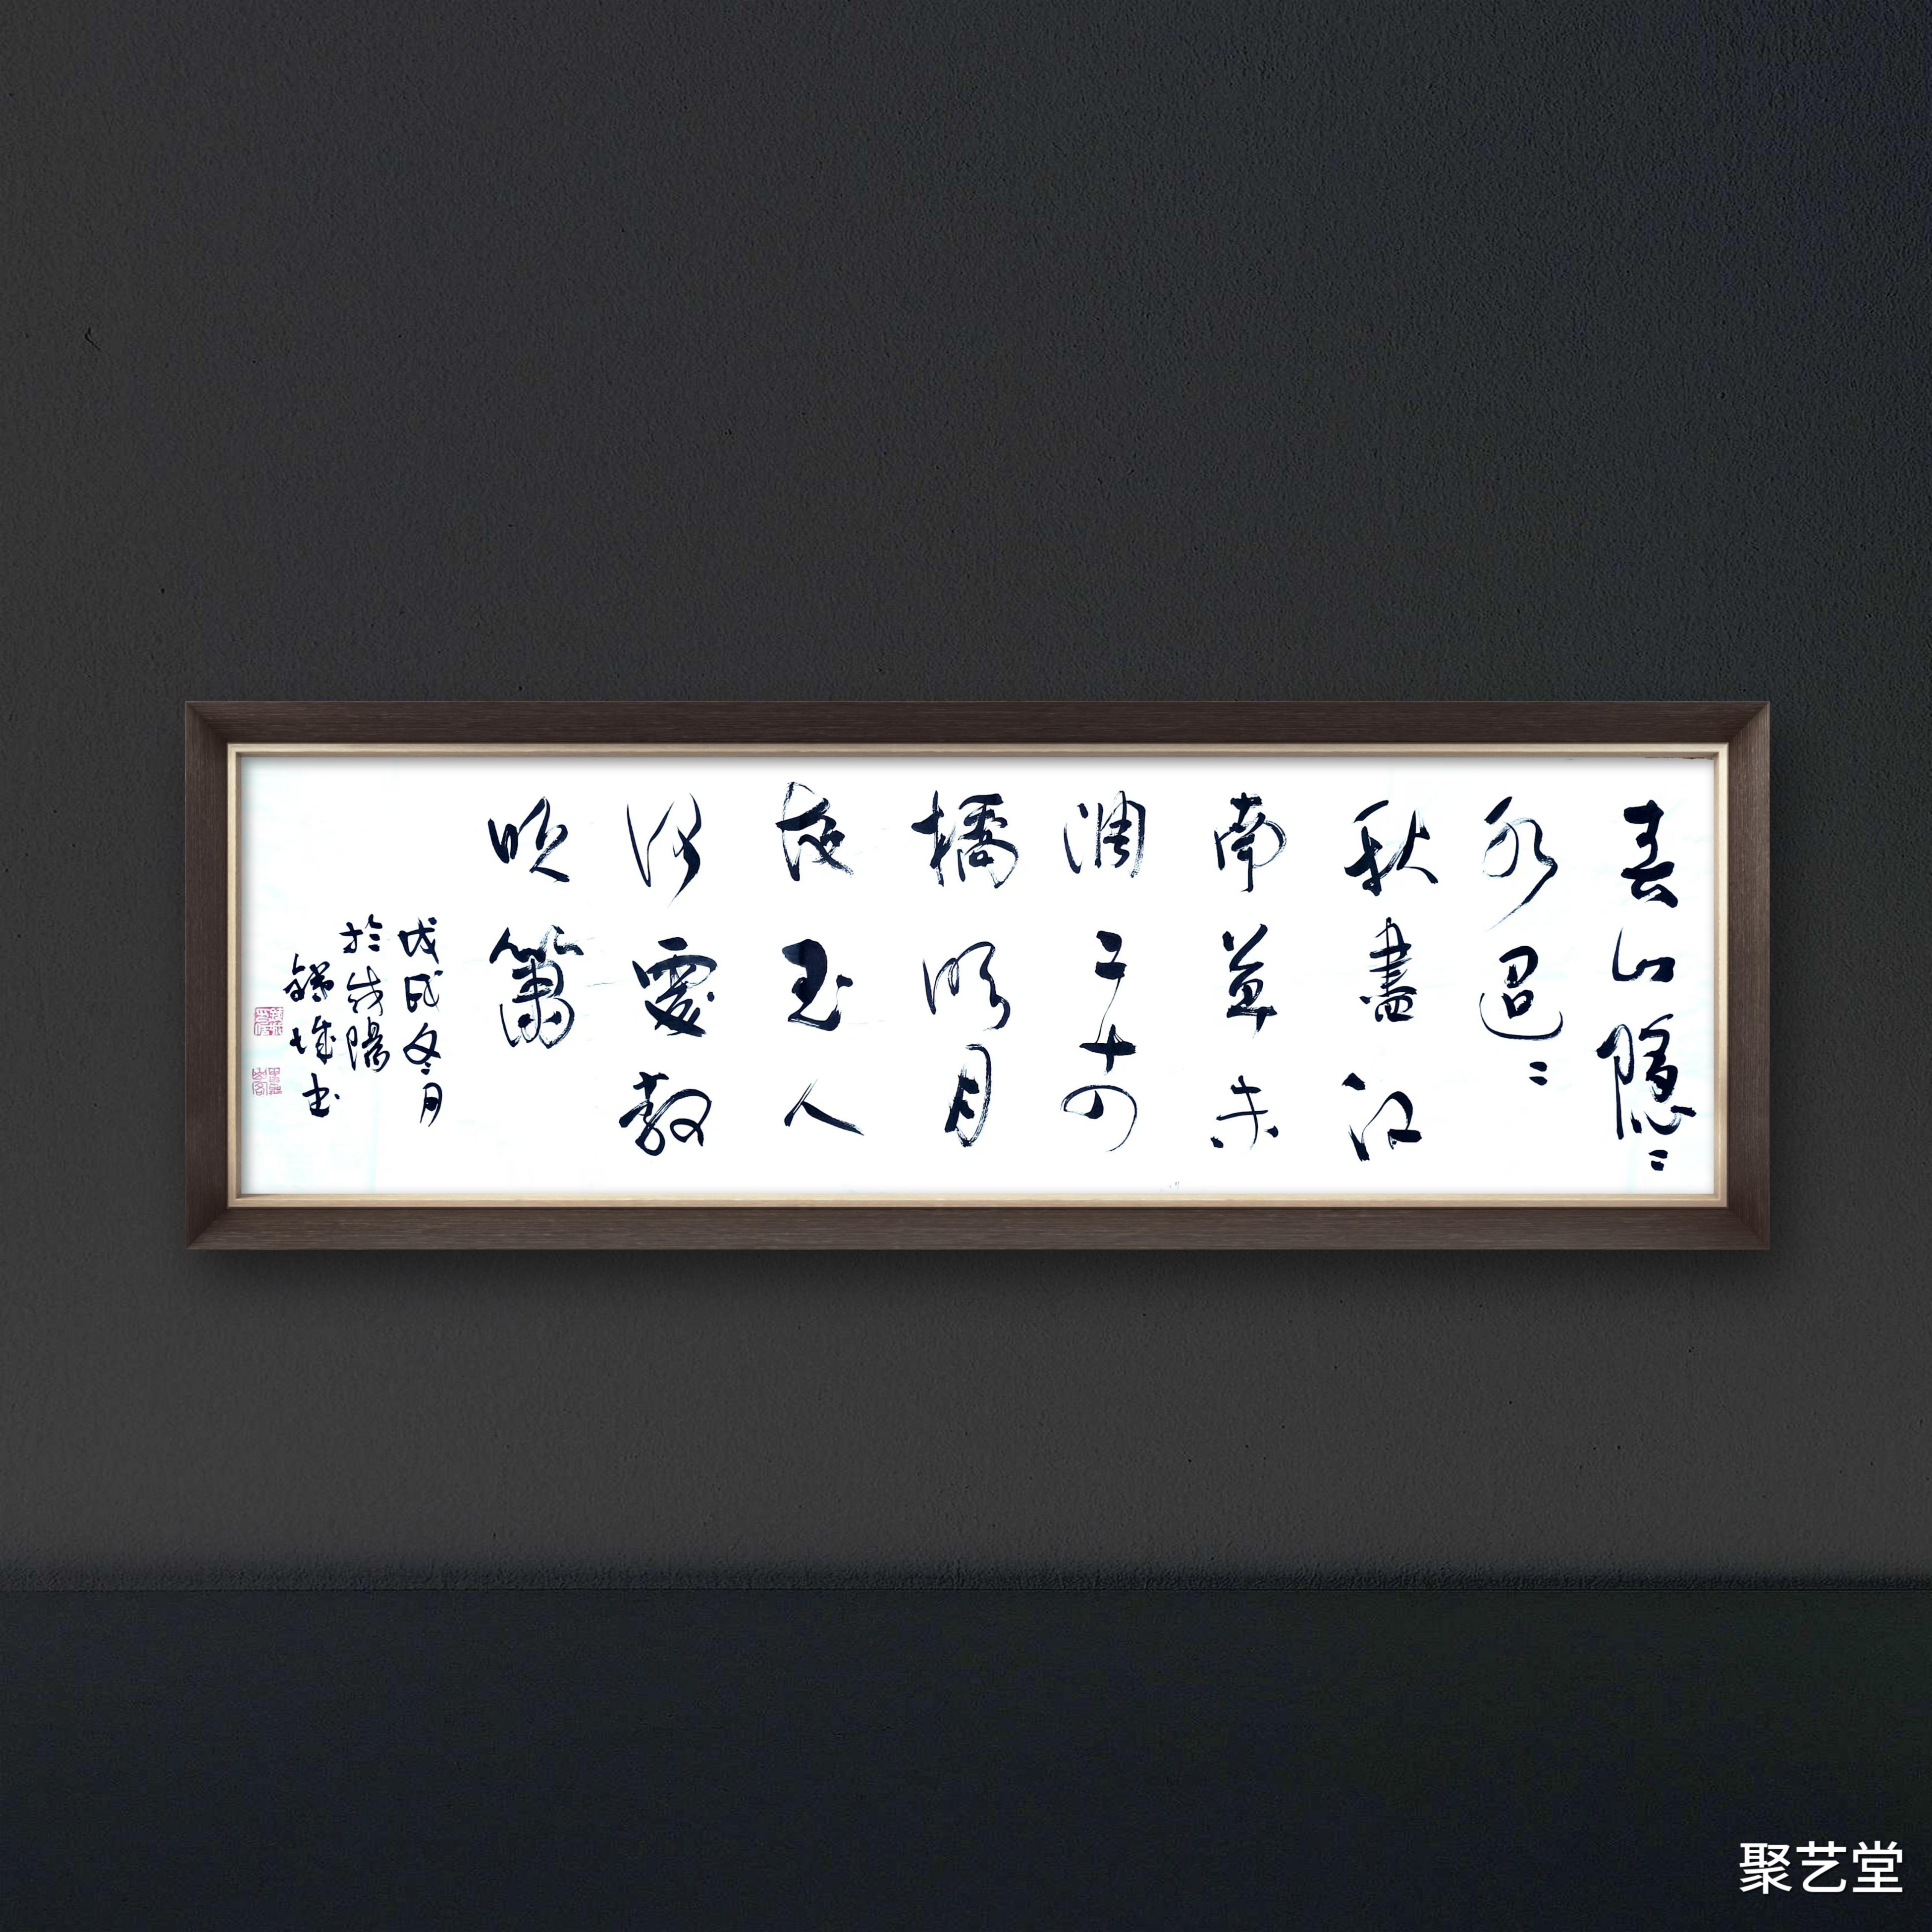 青山隱〻
水迢〻
秋盡江
南草未
凋二十四
橋明月
夜玉人
何處教
吹簫
戊戌冬月
於陽
城书
聚艺堂